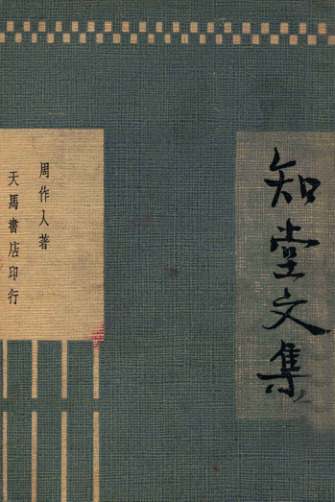 知堂文集
周作人著
天馬書店印行